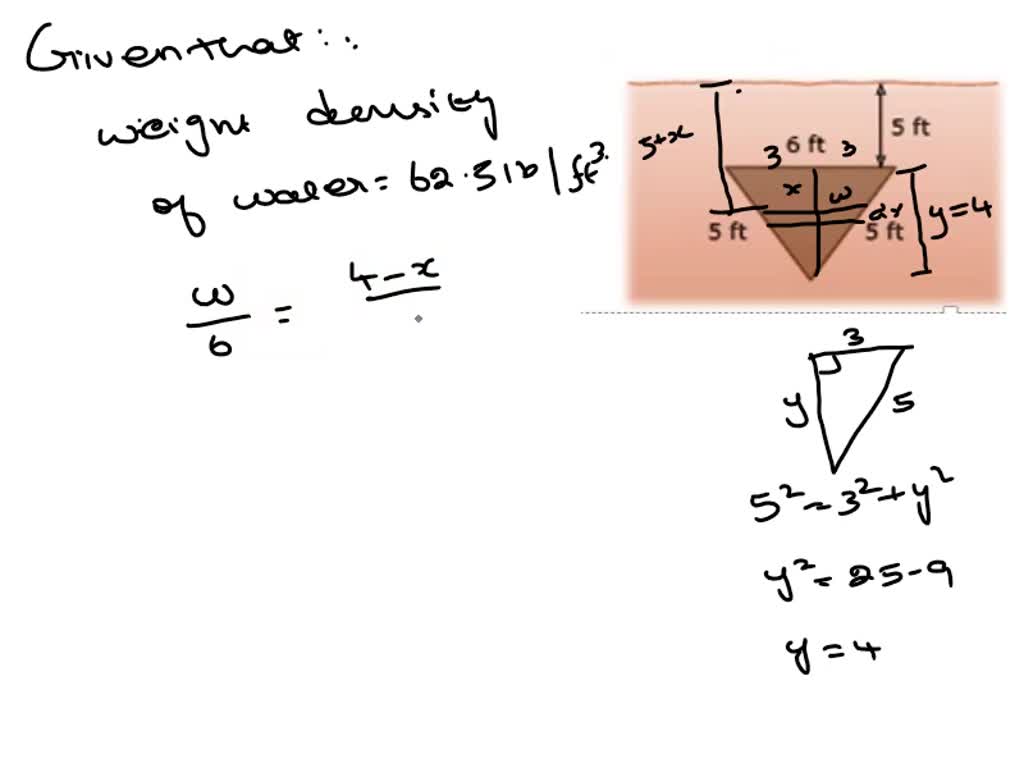 Given that :.
weight density
of water = 62.5 lb/ft³.
w/6 = 4-x/
5+x
6 ft
3 3
5 ft
x w
dx
y=4
5 ft 5 ft
3
y 5
5² = 3² + y²
y² = 25-9
y = 4